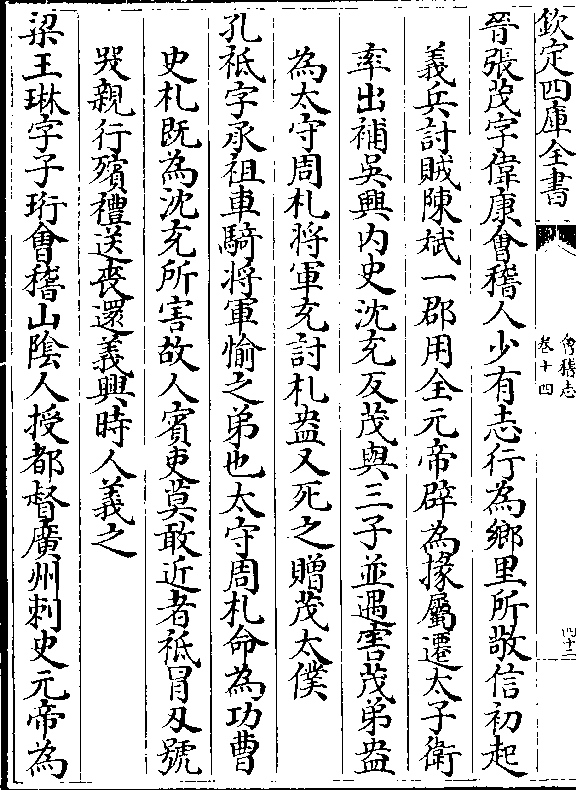 欽定四庫全書
會稽志
卷十四
四十二
晉張茂字偉康會稽人少有志行為鄉里所敬信初起
義兵討賊陳斌一郡用全元帝辟為掾屬遷太子衛
率出補吳興内史沈充反茂與三子並遇害茂弟盎
為太守周札將軍充討札盎又死之贈茂太僕
孔祗字承祖車騎將軍愉之弟也太守周札命為功曹
史札既為沈充所害故人賓吏莫敢近者祗冒刃號
哭親行殯禮送喪還義興時人義之
梁王琳字子珩會稽山陰人授都督廣州刺史元帝為